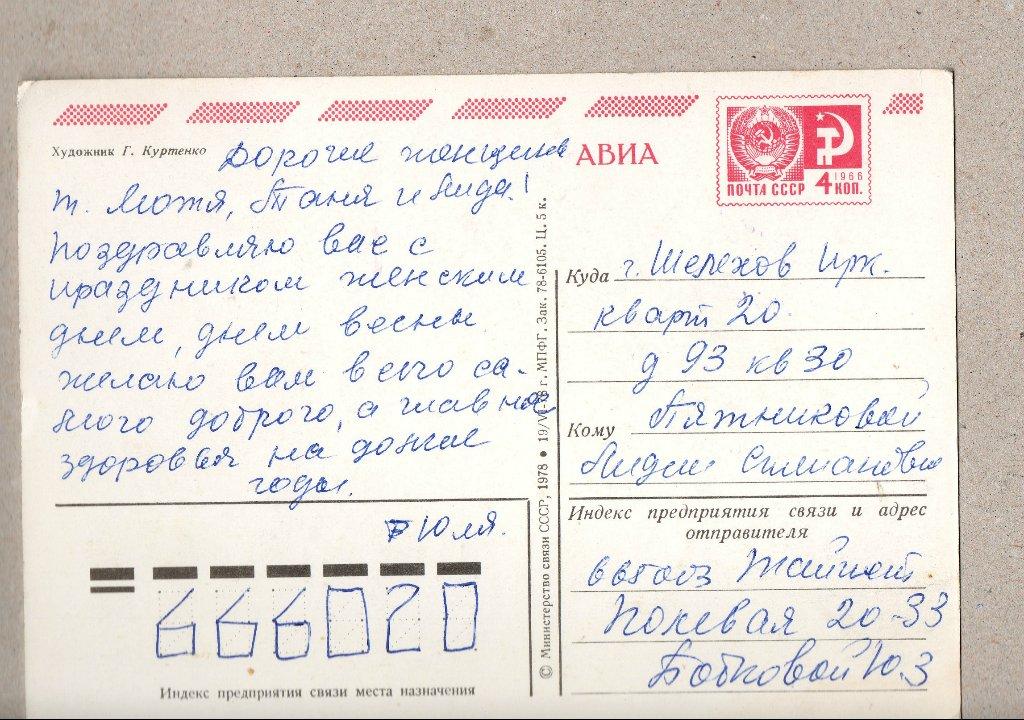 Художник Г. Куртенко
Дорогие женщины
т. Мотя, Таня и Лида!
Поздравляю вас с
праздником женским
днем, днем весны
желаю вам всего са-
мого доброго, а главное
здоровья на долгие
годы.
Юля.
666020
Индекс предприятия связи места назначения
© Министерство связи СССР, 1978 • 19/VI-78 г. МПФГ. Зак. 78-6105. Ц. 5 к.
АВИА
ПОЧТА СССР 4 КОП.
1966
Куда г. Шелехов Ирк.
кварт 20
д 93 кв 30
Кому Пятниковой
Лидии
Индекс предприятия связи и адрес
отправителя
20-33
Ю.З